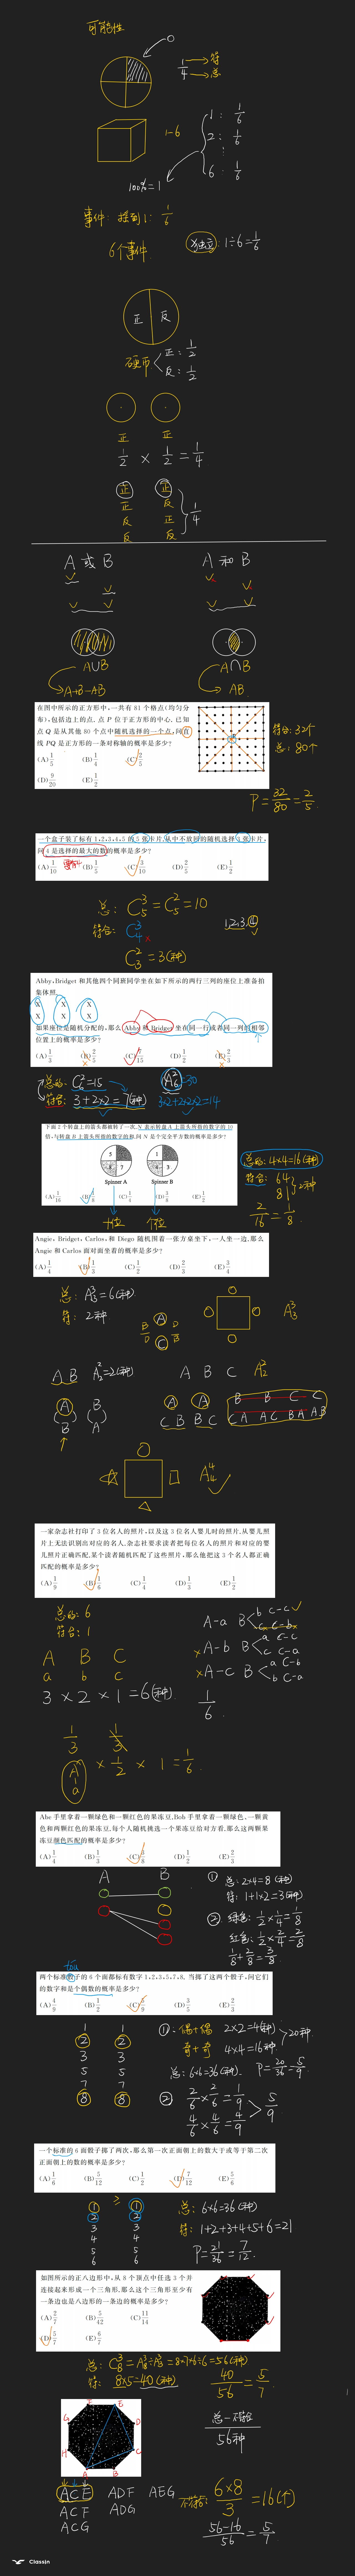 可能性
1/4 → 符
→ 总
1-6
1: 1/6
2: 1/6
⋮
6: 1/6
100%=1
事件: 掷到1: 1/6
6个事件
1÷6=1/6
正 反
硬币 正: 1/2
反: 1/2
正 正
1/2 × 1/2 = 1/4
正 正
正 反
反 正
反 反
1/4
A 或 B
A 和 B
A∪B
A+B-AB
A∩B
AB
在图中所示的正方形中,一共有 81 个格点(均匀分
布),包括边上的点. 点 P 位于正方形的中心. 已知
点 Q 是从其他 80 个点中随机选择的一个点,问直
线 PQ 是正方形的一条对称轴的概率是多少?
(A) 1/5 (B) 1/4 (C) 2/5
(D) 9/20 (E) 1/2
符合: 32个
总: 80个
P=32/80=2/5
一个盒子装了标有 1,2,3,4,5 的 5 张卡片,从中不放回的随机选择 3 张卡片,
问 4 是选择的最大的数的概率是多少?
(A) 1/10 (B) 1/5 (C) 3/10 (D) 2/5 (E) 1/2
总: C₅³=C₅²=10
符合: C₄³ ×
C₃²=3(种)
1.2.3.4
Abby、Bridget 和其他四个同班同学坐在如下所示的两行三列的座位上准备拍
集体照.
X X X
X X X
如果座位是随机分配的,那么 Abby 和 Bridget 坐在同一行或者同一列的相邻
位置上的概率是多少?
(A) 1/3 (B) 2/5 (C) 7/15 (D) 1/2 (E) 2/3
总的: C₆²=15
A₆²=30
符合: 3+2×2=7(种)
3×2+2×2×2=14
下面 2 个转盘上的箭头都被转了一次,N 表示转盘 A 上箭头所指的数字的 10
倍,与转盘 B 上箭头所指的数字的和,问 N 是个完全平方数的概率是多少?
Spinner A Spinner B
(A) 1/16 (B) 1/8 (C) 1/4 (D) 3/8 (E) 1/2
十位 个位
总的: 4×4=16(种)
符合: 64
81
2种
2/16=1/8
Angie, Bridget, Carlos, 和 Diego 随机围着一张方桌坐下,一人坐一边,那么
Angie 和 Carlos 面对面坐着的概率是多少?
(A) 1/4 (B) 1/3 (C) 1/2 (D) 2/3 (E) 3/4
总: A₃³=6(种)
符: 2种
A
B D
D B
C
A₃³
A B A₂²=2(种)
A B C A₂²
A B
B A
A A
C B B C
B B C C
C A A C B A A B
A₄⁴
一家杂志社打印了 3 位名人的照片,以及这 3 位名人婴儿时的照片,从婴儿照
片上无法识别出对应的名人,杂志社要求读者把每位名人的照片和对应的婴
儿照片正确匹配,某个读者随机匹配了这些照片,那么他把 3 个名人都正确
匹配的概率是多少?
(A) 1/9 (B) 1/6 (C) 1/4 (D) 1/3 (E) 1/2
总的: 6
符合: 1
A B C
a b c
3 × 2 × 1 = 6(种)
A-a B b C-c
c C-b ×
× A-b B a C-c
c C-a
× A-c B a C-b
b C-a
1/6
1/3
1/3 × 1/2 × 1 = 1/6
A-a
Abe 手里拿着一颗绿色和一颗红色的果冻豆,Bob 手里拿着一颗绿色、一颗黄
色和两颗红色的果冻豆,每个人随机挑选一个果冻豆给对方看,那么这两颗果
冻豆颜色匹配的概率是多少?
(A) 1/4 (B) 1/3 (C) 3/8 (D) 1/2 (E) 2/3
A B
① 总: 2×4=8(种)
符: 1+1×2=3(种)
② 绿色: 1/2×1/4=1/8
红色: 1/2×2/4=2/8
1/8+2/8=3/8
tóu
两个标准骰子的 6 个面都标有数字 1,2,3,5,7,8, 当掷了这两个骰子,问它们
的数字和是个偶数的概率是多少?
(A) 4/9 (B) 1/2 (C) 5/9 (D) 3/5 (E) 2/3
1 1
2 2
3 3
5 5
7 7
8 8
① 偶+偶 2×2=4(种)
奇+奇 4×4=16种
20种
总: 6×6=36(种) P=20/36=5/9
② 2/6×2/6=1/9
4/6×4/6=4/9
5/9
一个标准的 6 面骰子掷了两次,那么第一次正面朝上的数大于或等于第二次
正面朝上的数的概率是多少?
(A) 1/6 (B) 5/12 (C) 1/2 (D) 7/12 (E) 5/6
1 ≥ 1
2 2
3 3
4 4
5 5
6 6
总: 6×6=36(种)
符: 1+2+3+4+5+6=21
P=21/36=7/12
如图所示的正八边形中,从 8 个顶点中任选 3 个并
连接起来形成一个三角形,那么这个三角形至少有
一条边也是八边形的一条边的概率是多少?
(A) 2/7 (B) 5/42 (C) 11/14
(D) 5/7 (E) 6/7
总: C₈³=A₈³÷A₃³=8×7×6÷6=56(种)
符: 8×5=40(种)
40/56=5/7
总-不符合
56种
F E
G D
H C
A B
ACE ADF AEG
ACF ADG
ACG
不符合: 6×8/3=16(个)
56-16/56=5/7
Classin